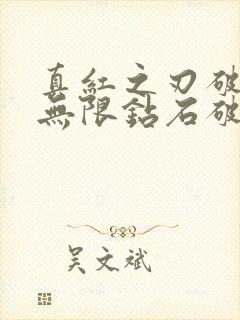 真紅之刃破
無限鈷石破
吴文斌